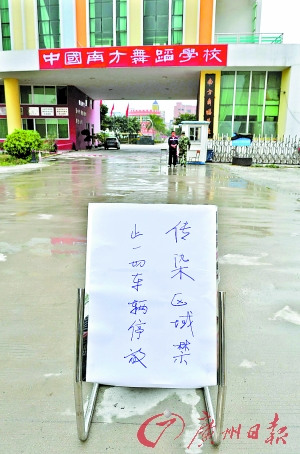 中國南方舞蹈學校
传染区域禁
止一切车辆停放
廣州日报